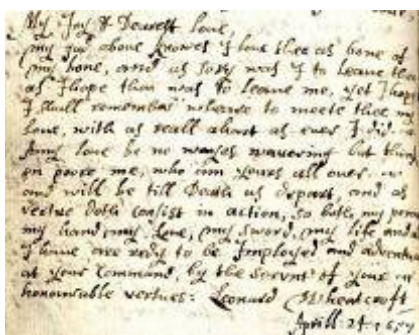 My Joy & Dearest love,
my god above knowes I love thee as bone of
my bone, and as sory was I to leave thee
as I hope thou was to leave me, yet I hope
I shall remember where to meete thee my
love, with as reall a hart as ever I did
my love be no wayes wavering but think
on poore me, who am yours all over
and will be till Death us depart, and as
vertue Doth Consist in action, so doth my
my hand, my love, my sword, my life and
I have are redy to be Imployed and adventur
at your Command, by the servnt of your
honourable vertues: Leonard Wheatcroft
Aprill: 24